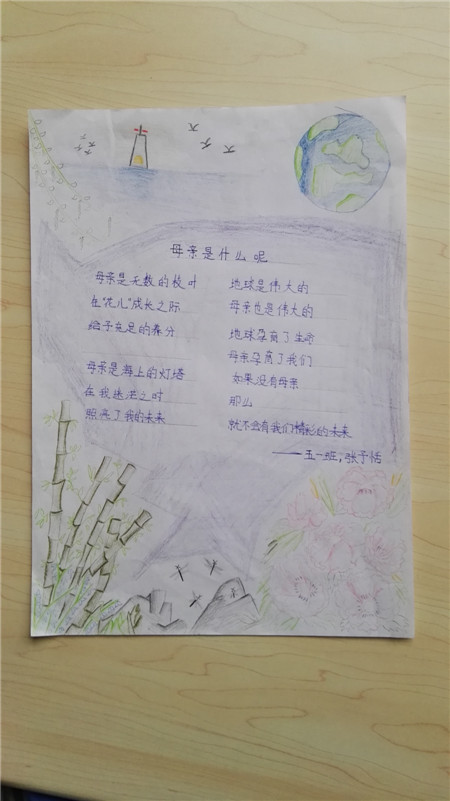 母亲是什么呢
母亲是无数的枝叶
在“花儿”成长之际
给予充足的养分
母亲是海上的灯塔
在我迷茫之时
照亮了我的未来
地球是伟大的
母亲也是伟大的
地球孕育了生命
母亲孕育了我们
如果没有母亲
那么
就不会有我们精彩的未来
——五一班，张予恬